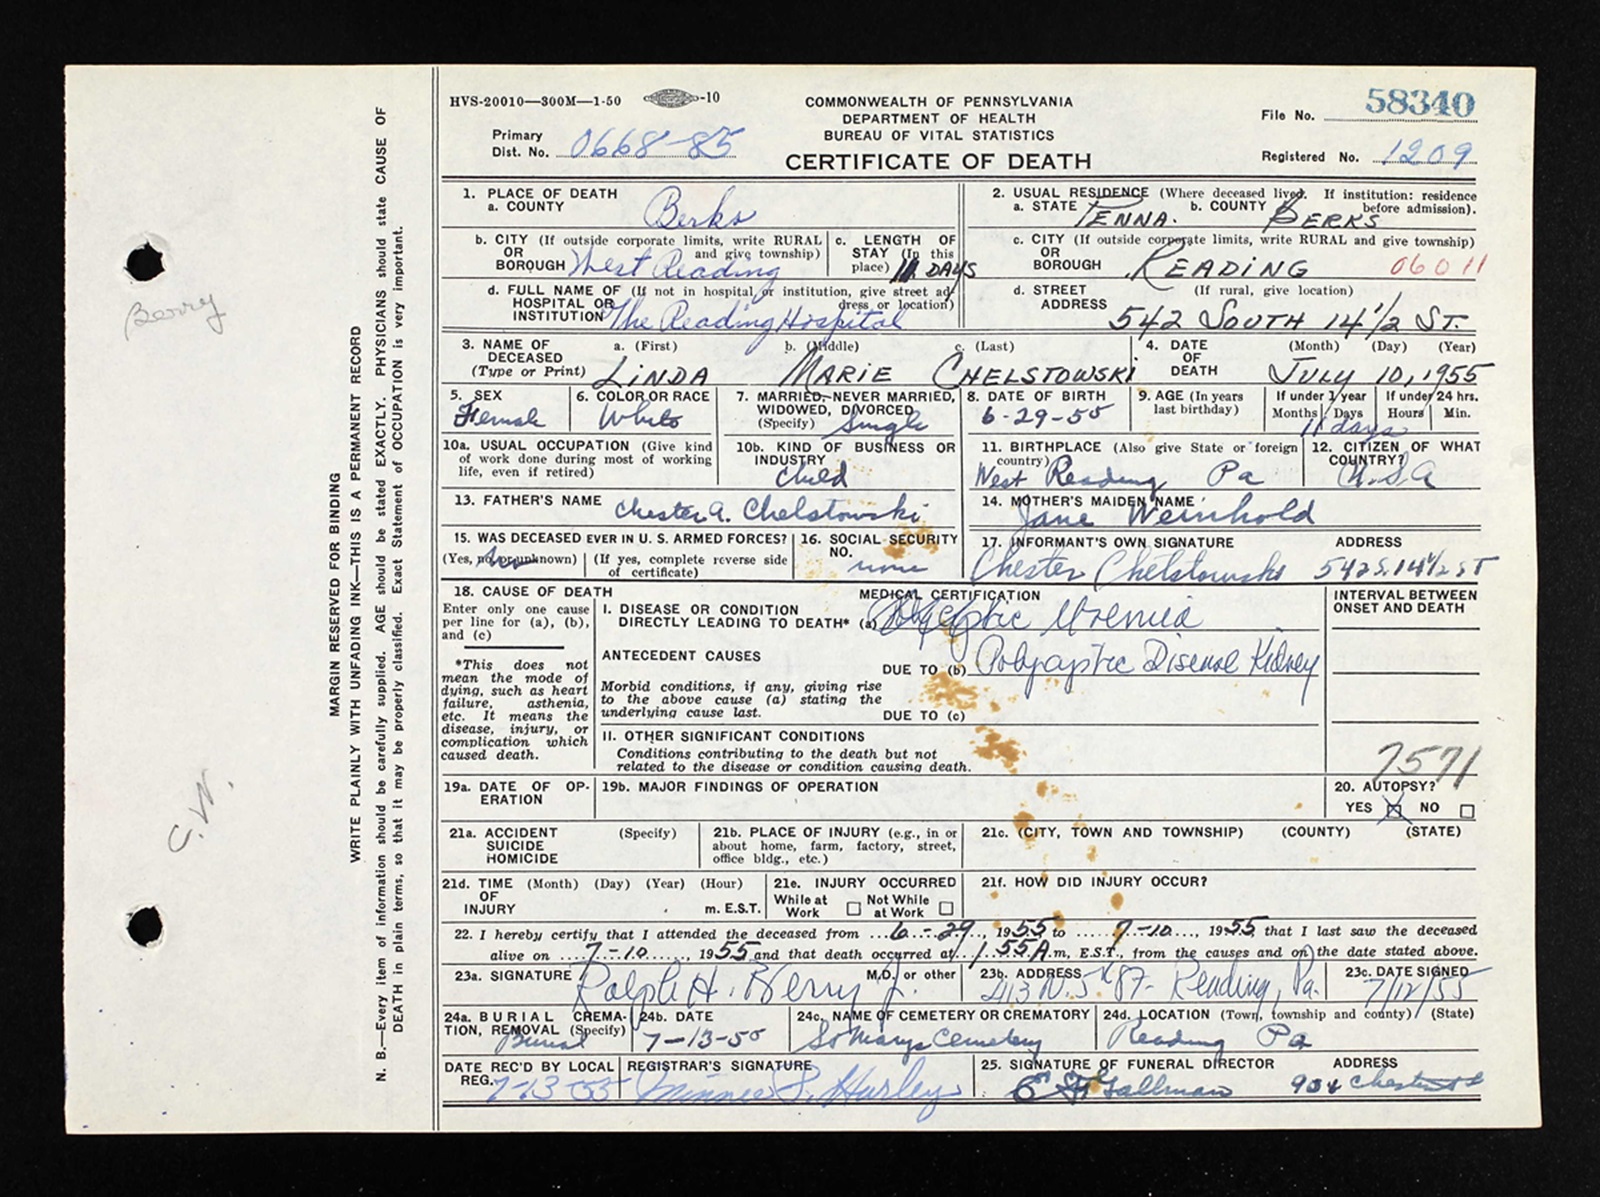 HVS-20010—300M—1-50 -10
COMMONWEALTH OF PENNSYLVANIA
DEPARTMENT OF HEALTH
BUREAU OF VITAL STATISTICS
CERTIFICATE OF DEATH
File No. 58340
Primary
Dist. No. 0668-85
Registered No. 1209
1. PLACE OF DEATH
a. COUNTY Berks
2. USUAL RESIDENCE (Where deceased lived. If institution: residence
a. STATE PENNA. b. COUNTY BERKS before admission).
b. CITY (If outside corporate limits, write RURAL
OR and give township)
BOROUGH West Reading
c. LENGTH OF
STAY (In this
place) 11 DAYS
c. CITY (If outside corporate limits, write RURAL and give township)
OR
BOROUGH READING 06011
d. FULL NAME OF (If not in hospital or institution, give street ad-
HOSPITAL OR dress or location)
INSTITUTION The Reading Hospital
d. STREET (If rural, give location)
ADDRESS
542 SOUTH 14 1/2 ST.
3. NAME OF a. (First) b. (Middle) c. (Last)
DECEASED
(Type or Print) LINDA MARIE CHELSTOWSKI
4. DATE (Month) (Day) (Year)
OF
DEATH JULY 10, 1955
5. SEX
Female
6. COLOR OR RACE
White
7. MARRIED, NEVER MARRIED,
WIDOWED, DIVORCED
(Specify) Single
8. DATE OF BIRTH
6-29-55
9. AGE (In years
last birthday)
If under 1 year
Months Days
11 days
If under 24 hrs.
Hours Min.
10a. USUAL OCCUPATION (Give kind
of work done during most of working
life, even if retired)
10b. KIND OF BUSINESS OR
INDUSTRY
Child
11. BIRTHPLACE (Also give State or foreign
country)
West Reading Pa
12. CITIZEN OF WHAT
COUNTRY?
U.S.A
13. FATHER'S NAME Chester A. Chelstowski
14. MOTHER'S MAIDEN NAME
Jane Weinhold
15. WAS DECEASED EVER IN U. S. ARMED FORCES?
(Yes, no, or unknown) no
(If yes, complete reverse side
of certificate)
16. SOCIAL SECURITY
NO.
none
17. INFORMANT'S OWN SIGNATURE ADDRESS
Chester Chelstowski 542 S. 14 1/2 ST
18. CAUSE OF DEATH
Enter only one cause
per line for (a), (b),
and (c)
*This does not
mean the mode of
dying, such as heart
failure, asthenia,
etc. It means the
disease, injury, or
complication which
caused death.
MEDICAL CERTIFICATION
I. DISEASE OR CONDITION
DIRECTLY LEADING TO DEATH* (a) Uremia
ANTECEDENT CAUSES
DUE TO (b) Polycystic Disease Kidney
Morbid conditions, if any, giving rise
to the above cause (a) stating the
underlying cause last.
DUE TO (c)
II. OTHER SIGNIFICANT CONDITIONS
Conditions contributing to the death but not
related to the disease or condition causing death.
INTERVAL BETWEEN
ONSET AND DEATH
7571
19a. DATE OF OP-
ERATION
19b. MAJOR FINDINGS OF OPERATION
20. AUTOPSY?
YES X NO
21a. ACCIDENT (Specify)
SUICIDE
HOMICIDE
21b. PLACE OF INJURY (e.g., in or
about home, farm, factory, street,
office bldg., etc.)
21c. (CITY, TOWN AND TOWNSHIP) (COUNTY) (STATE)
21d. TIME (Month) (Day) (Year) (Hour)
OF
INJURY m. E.S.T.
21e. INJURY OCCURRED
While at Not While
Work at Work
21f. HOW DID INJURY OCCUR?
22. I hereby certify that I attended the deceased from 6-29, 1955 to 7-10, 1955 that I last saw the deceased
alive on 7-10, 1955 and that death occurred at 1:55 A.m, E.S.T., from the causes and on the date stated above.
23a. SIGNATURE M.D. or other
Ralph H. Berry Jr.
23b. ADDRESS
413 N. 5th St. Reading, Pa.
23c. DATE SIGNED
7/12/55
24a. BURIAL CREMA-
TION, REMOVAL (Specify)
Burial
24b. DATE
7-13-55
24c. NAME OF CEMETERY OR CREMATORY
St Marys Cemetery
24d. LOCATION (Town, township and county) (State)
Reading Pa
DATE REC'D BY LOCAL
REG. 7-13-55
REGISTRAR'S SIGNATURE
Minnie S. Hurley
25. SIGNATURE OF FUNERAL DIRECTOR ADDRESS
Gallman 934 Chestnut St
MARGIN RESERVED FOR BINDING
WRITE PLAINLY WITH UNFADING INK—THIS IS A PERMANENT RECORD
N. B.—Every item of information should be carefully supplied. AGE should be stated EXACTLY. PHYSICIANS should state CAUSE OF
DEATH in plain terms, so that it may be properly classified. Exact Statement of OCCUPATION is very important.
Berry
C.W.